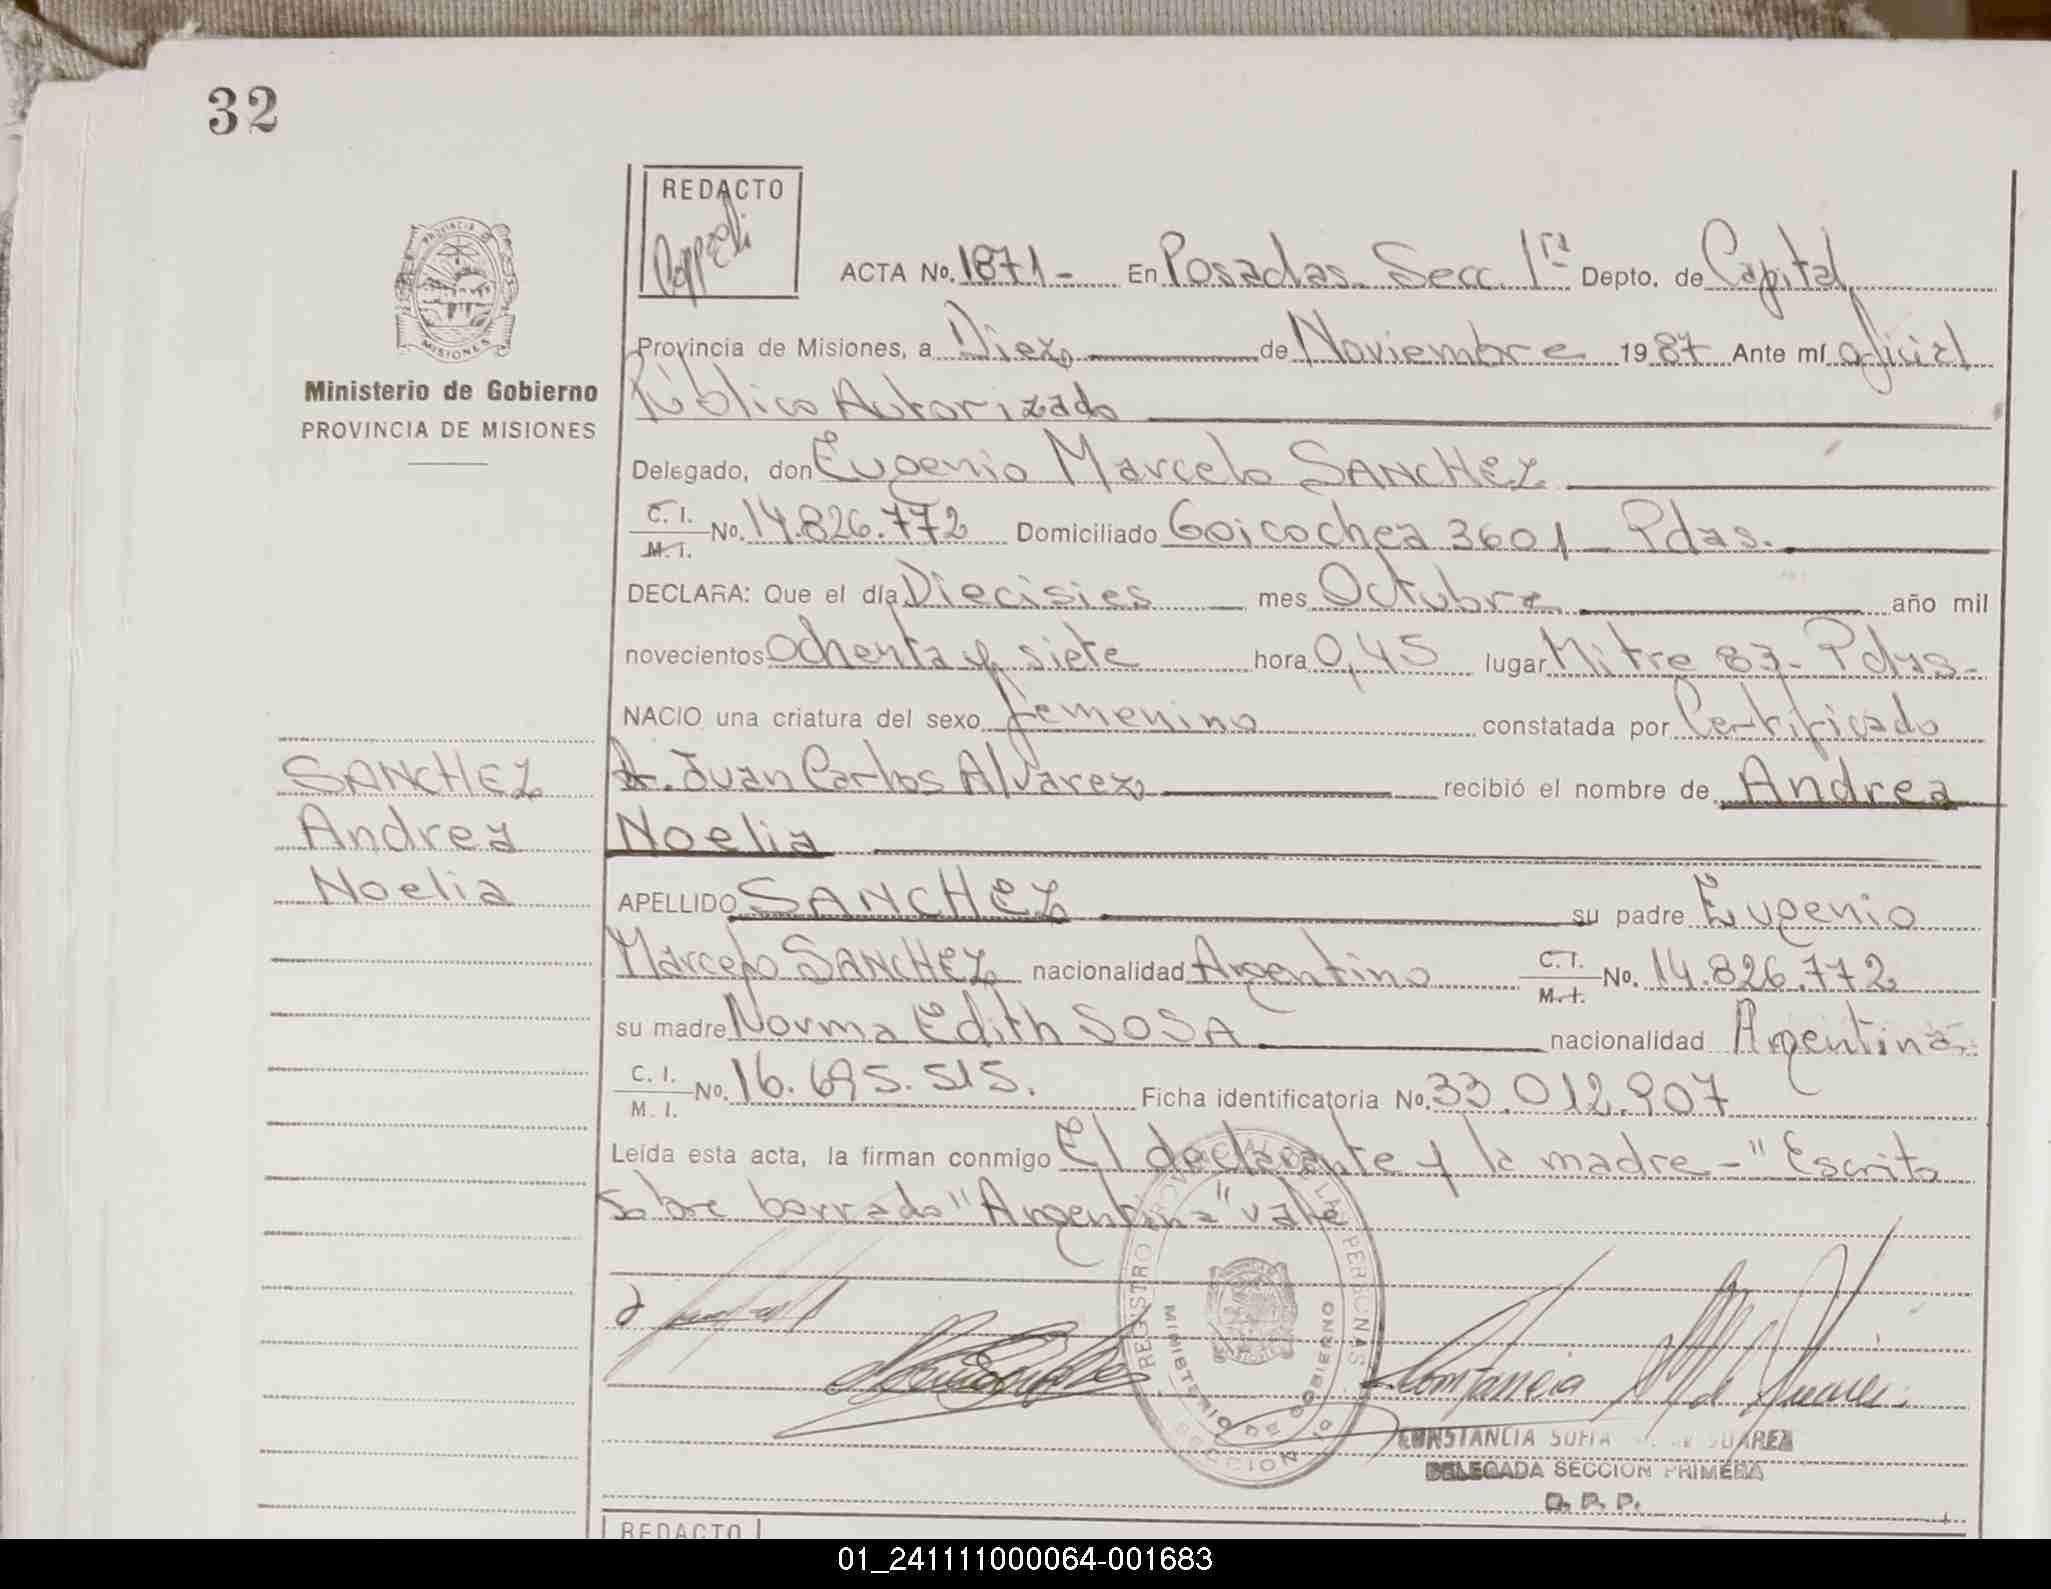 32
REDACTO
ACTA No. 1871- En Posadas. Secc. 1ra Depto. de Capital
Provincia de Misiones, a Diez de Noviembre 1987 Ante mí oficial
Público Autorizado
Ministerio de Gobierno
PROVINCIA DE MISIONES
Delegado, don Eugenio Marcelo SANCHEZ
C. I. M. I. No. 14.826.772 Domiciliado Goicochea 3601 - Pdas.
DECLARA: Que el día Diecisies mes Octubre año mil
novecientos ochenta y siete hora 0,45 lugar Mitre 83- Pdas-
NACIO una criatura del sexo femenino constatada por Certificado
Dr. Juan Carlos Alvarez recibió el nombre de Andrea
Noelia
SANCHEZ
Andrea
Noelia
APELLIDO SANCHEZ su padre Eugenio
Marcelo SANCHEZ nacionalidad Argentino C. I. M. I. No. 14.826.772
su madre Norma Edith SOSA nacionalidad Argentina
C. I. M. I. No. 16.695.515. Ficha identificatoria No. 33.012.907
Leída esta acta, la firman conmigo El declarante y la madre - "Escrito
sobre borrado "Argentina" vale
REGISTRO PROVINCIAL DE LAS PERSONAS
MINISTERIO DE GOBIERNO
SECCION 1a
CONSTANCIA SOFIA DE SUAREZ
DELEGADA SECCION PRIMERA
D. P. P.
REDACTO
01_241111000064-001683